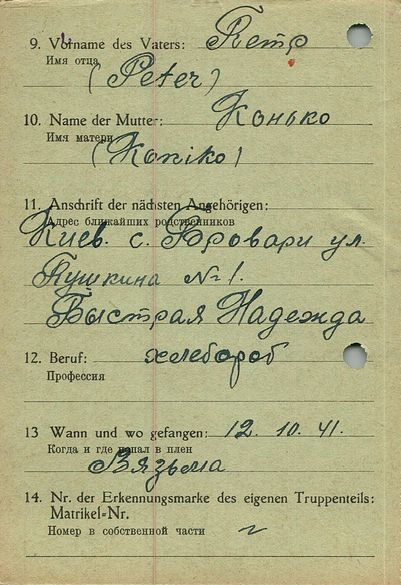 9. Vorname des Vaters: Петр
Имя отца (Peter)
10. Name der Mutter: Конько
Имя матери (Konko)
11. Anschrift der nächsten Angehörigen:
Адрес ближайших родственников
Киев. с. Бровари ул.
Пушкина №1.
Быстрая Надежда
12. Beruf: хлебороб
Профессия
13 Wann und wo gefangen: 12. 10. 41.
Когда и где попал в плен
Вязьма
14. Nr. der Erkennungsmarke des eigenen Truppenteils:
Matrikel-Nr.
Номер в собственной части